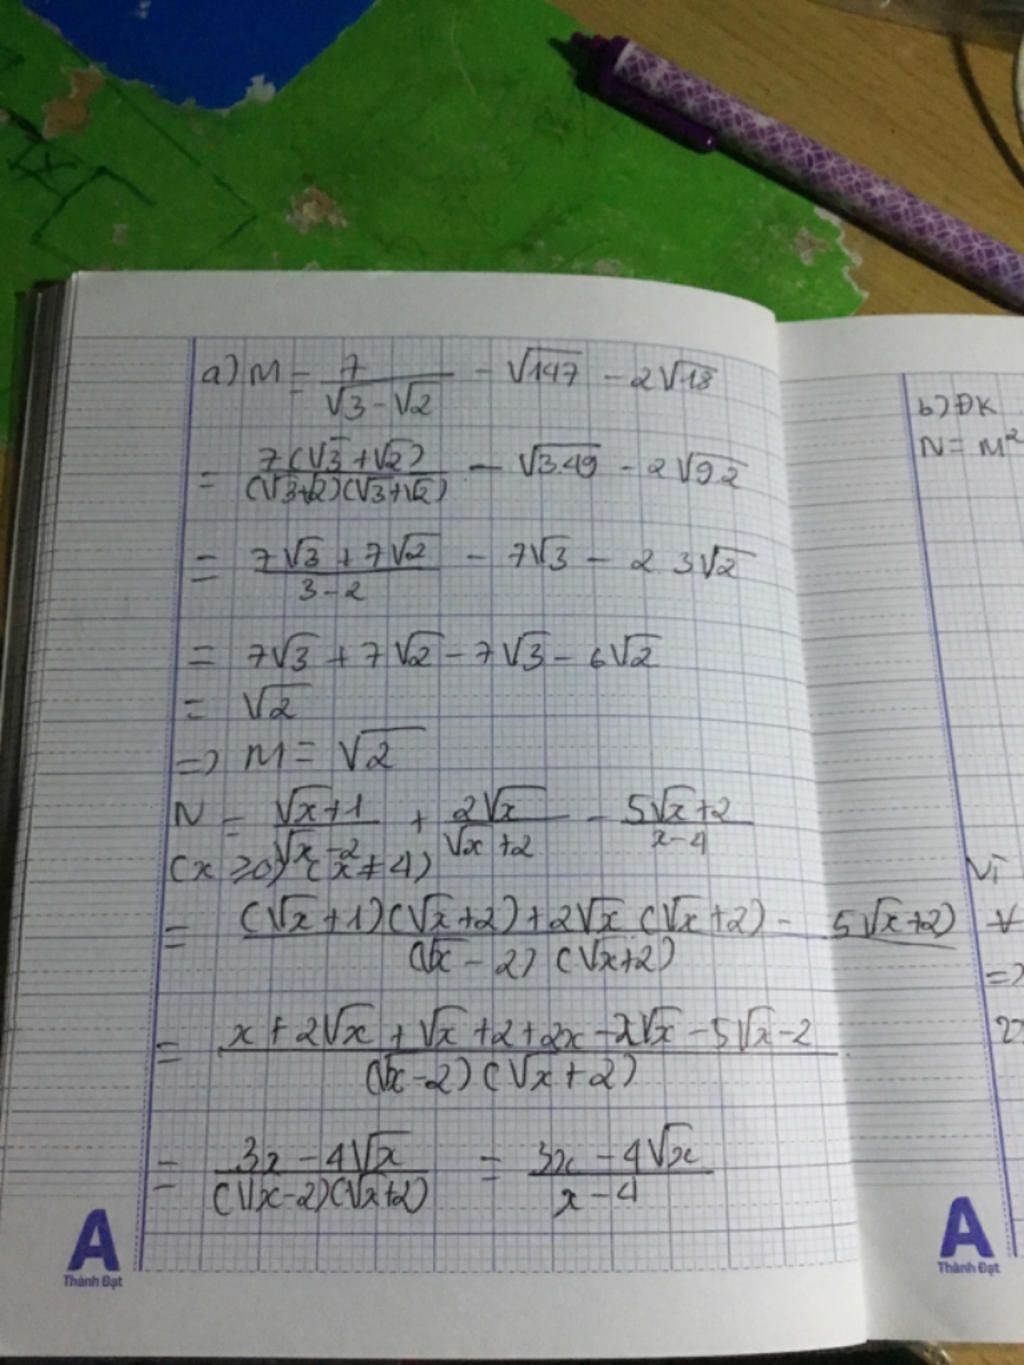 a) M = 7/(√3 - √2) - √147 - 2√18
= 7(√3 + √2)/((√3+√2)(√3+√2)) - √3.49 - 2√9.2
= (7√3 + 7√2)/(3-2) - 7√3 - 2.3√2
= 7√3 + 7√2 - 7√3 - 6√2
= √2
=> M = √2
N = (√x+1)/(√x-2) + 2√x/(√x+2) - (5√x+2)/(x-4)
(x ≥ 0) (x ≠ 4)
= ((√x+1)(√x+2) + 2√x (√x+2) - 5√x+2)/((√x-2)(√x+2))
= (x + 2√x + √x + 2 + 2x - 2√x - 5√x - 2)/((√x-2)(√x+2))
= (3x - 4√x)/((√x-2)(√x+2)) = (3x - 4√x)/(x-4)
A
Thành Đạt
b) ĐK
N = M²
Vì
=>
A
Thành Đạt